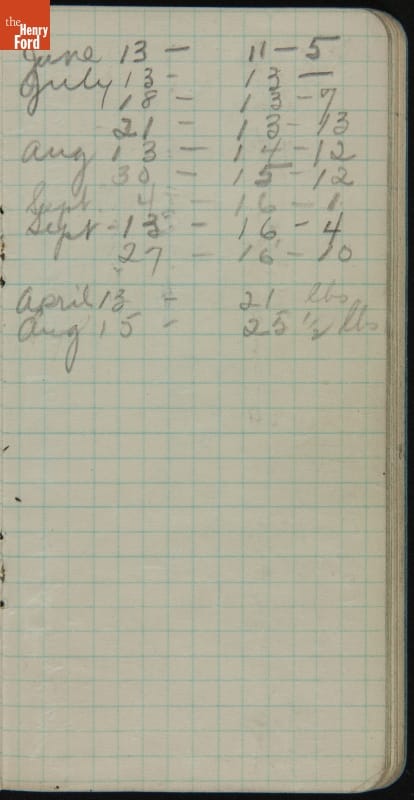 the
Henry
Ford
June 13 - 11 - 5
July 13 - 13 -
18 - 13 - 7
21 - 13 - 13
Aug 13 - 14 - 12
30 - 15 - 12
Sept. 4 - 16 - 1
Sept - 13 - 16 - 4
27 - 16 - 10
April 13 - 21 lbs
Aug 15 - 25 1/2 lbs